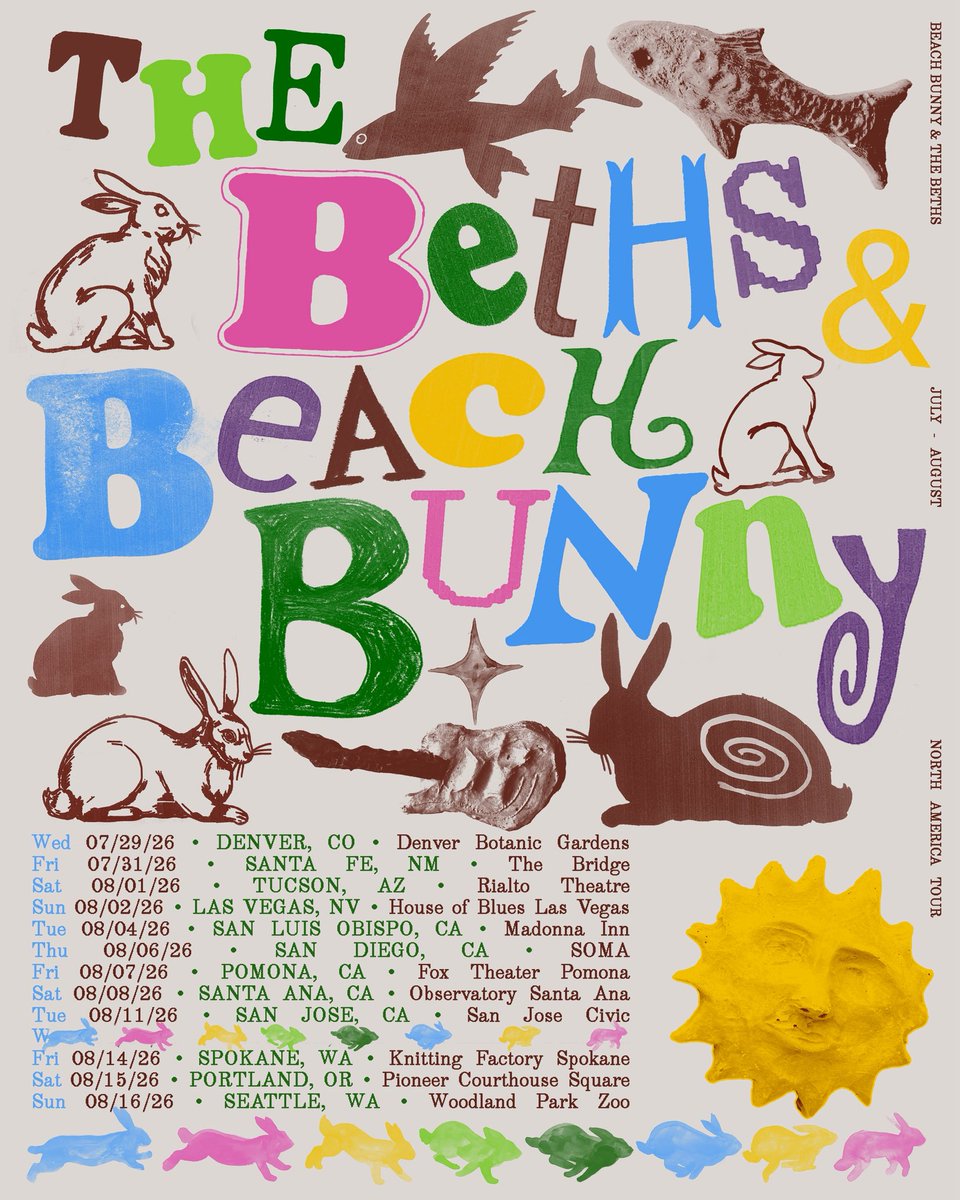 THE
BetHS &
BeACH
BUNny
BEACH BUNNY & THE BETHS
JULY - AUGUST
NORTH AMERICA TOUR
Wed 07/29/26 • DENVER, CO • Denver Botanic Gardens
Fri 07/31/26 • SANTA FE, NM • The Bridge
Sat 08/01/26 • TUCSON, AZ • Rialto Theatre
Sun 08/02/26 • LAS VEGAS, NV • House of Blues Las Vegas
Tue 08/04/26 • SAN LUIS OBISPO, CA • Madonna Inn
Thu 08/06/26 • SAN DIEGO, CA • SOMA
Fri 08/07/26 • POMONA, CA • Fox Theater Pomona
Sat 08/08/26 • SANTA ANA, CA • Observatory Santa Ana
Tue 08/11/26 • SAN JOSE, CA • San Jose Civic
Fri 08/14/26 • SPOKANE, WA • Knitting Factory Spokane
Sat 08/15/26 • PORTLAND, OR • Pioneer Courthouse Square
Sun 08/16/26 • SEATTLE, WA • Woodland Park Zoo